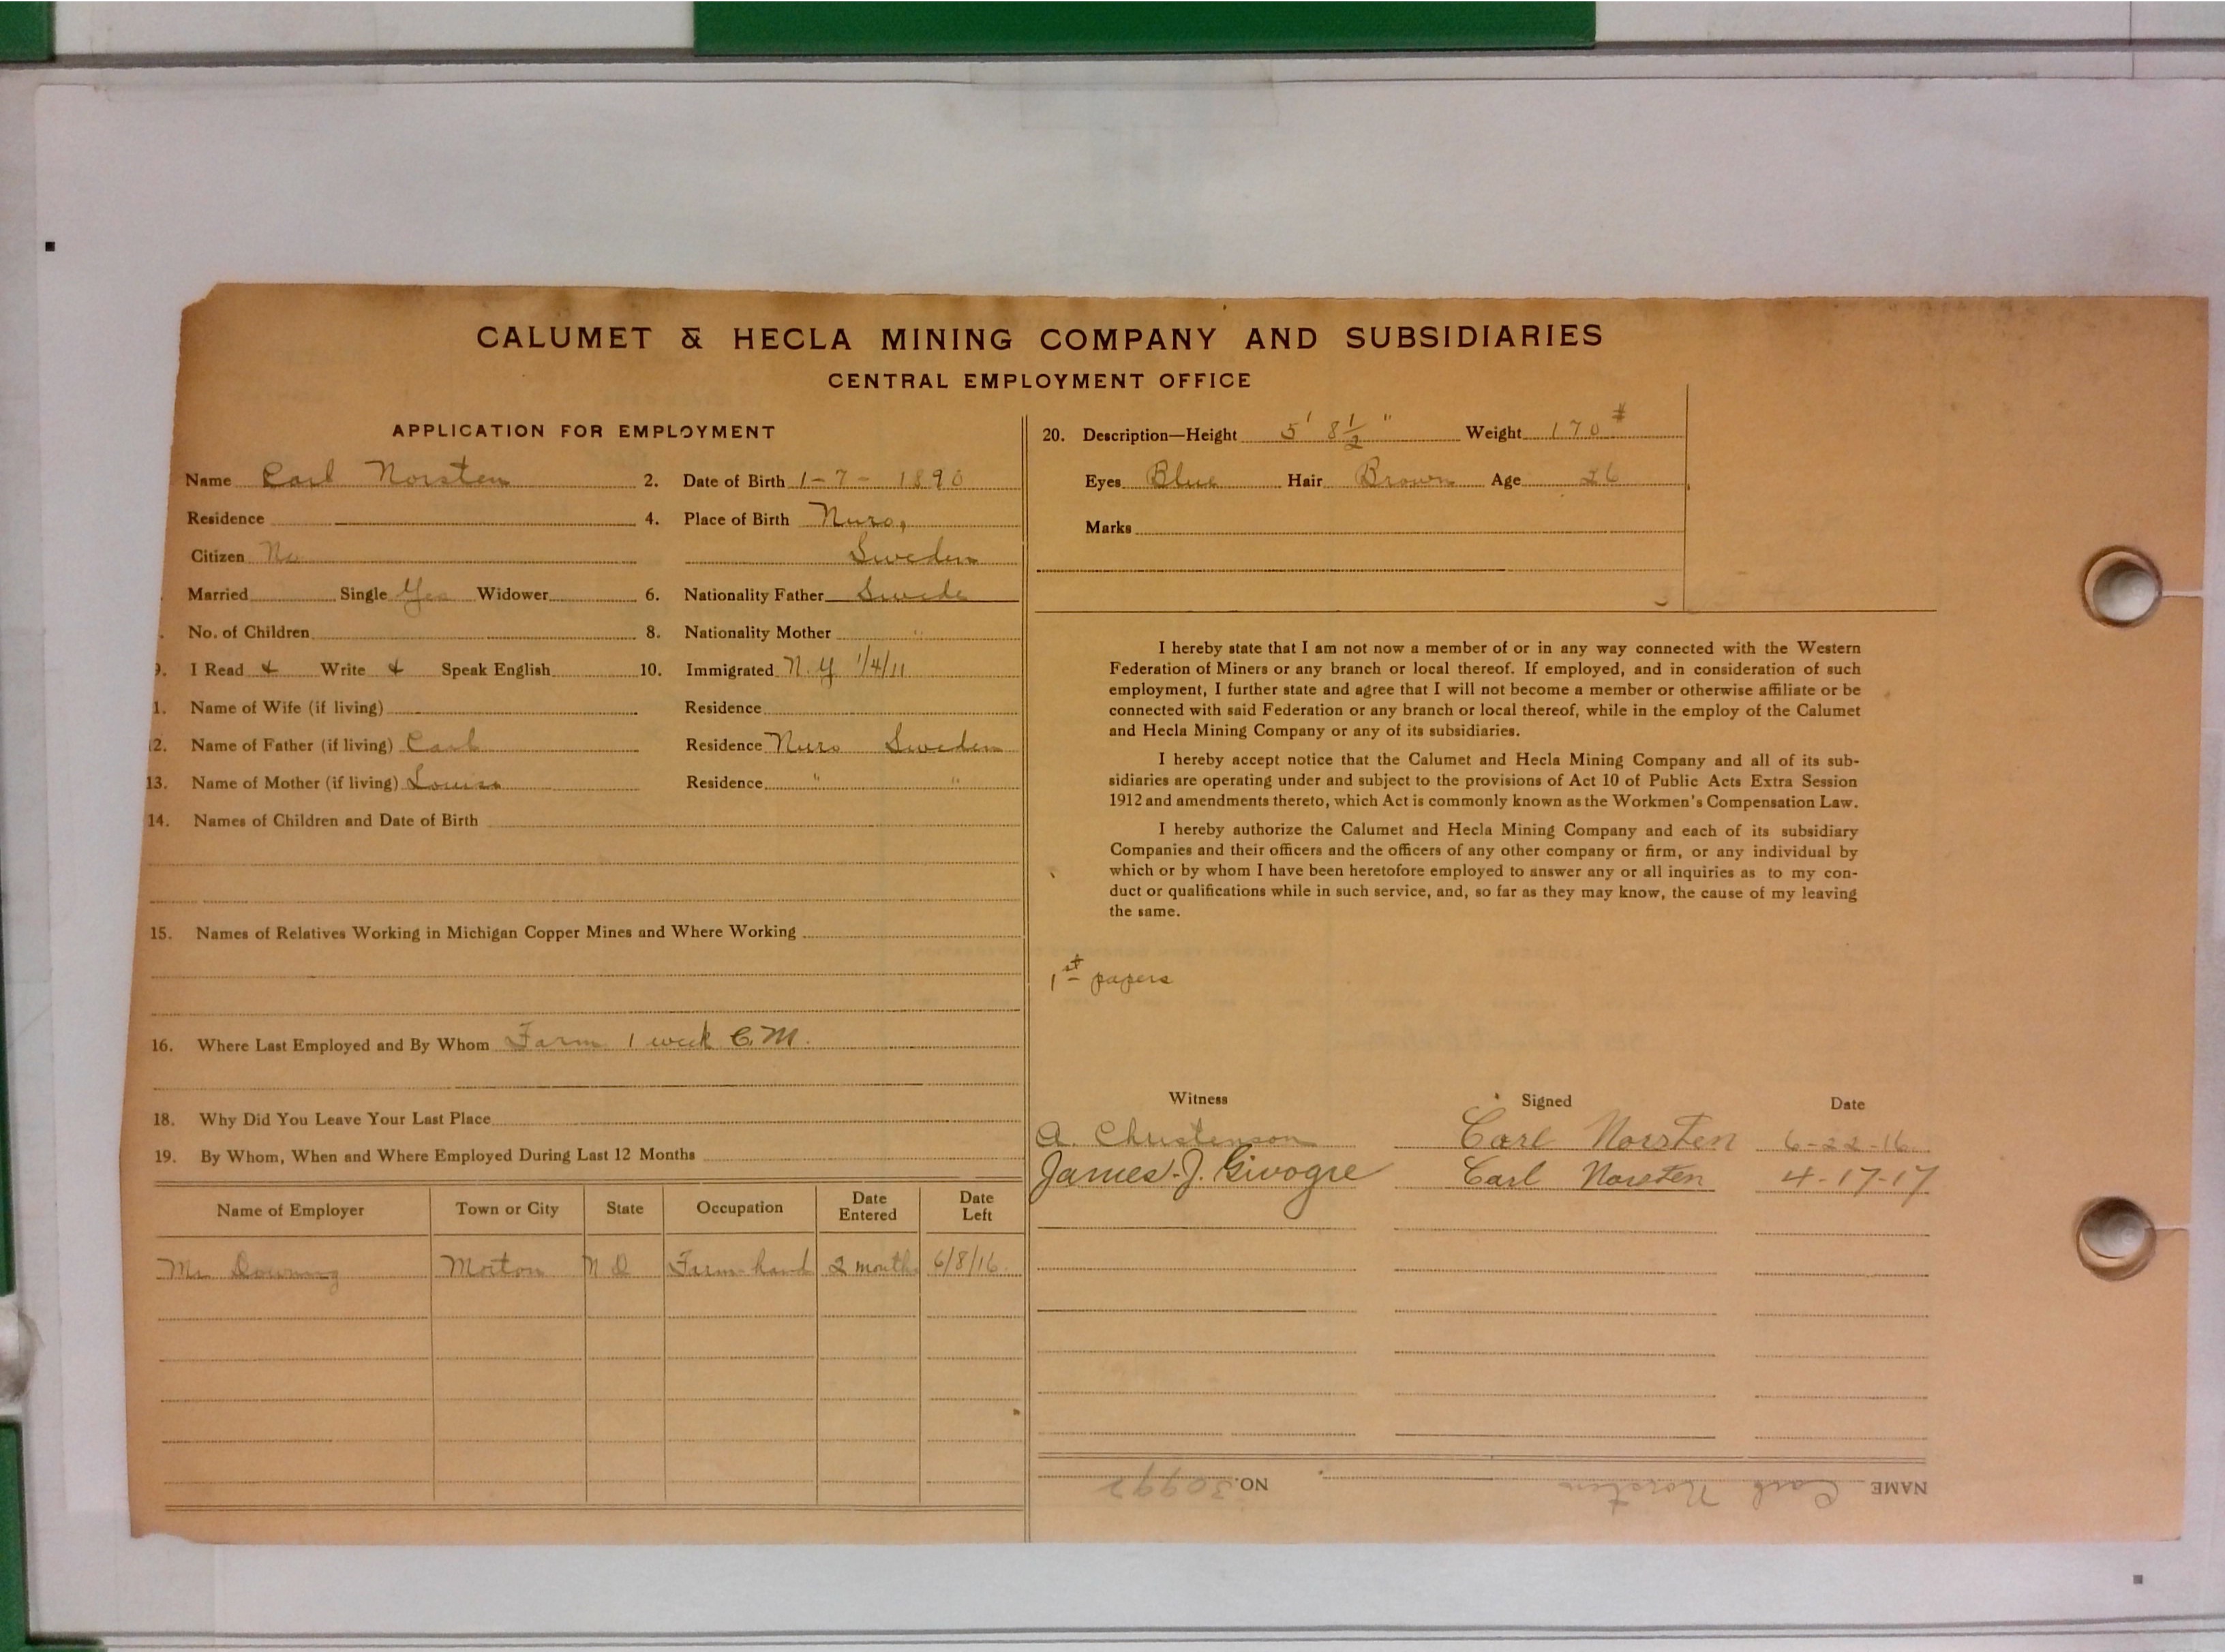 CALUMET & HECLA MINING COMPANY AND SUBSIDIARIES
CENTRAL EMPLOYMENT OFFICE
APPLICATION FOR EMPLOYMENT
Name Carl Norsten 2. Date of Birth 1-7-1890
Residence 4. Place of Birth Nuro,
Citizen No Sweden
Married Single Yes Widower 6. Nationality Father Swede
No. of Children 8. Nationality Mother "
9. I Read & Write & Speak English 10. Immigrated N.Y 1/4/11
1. Name of Wife (if living) Residence
12. Name of Father (if living) Carl Residence Nuro Sweden
13. Name of Mother (if living) Louisa Residence " "
14. Names of Children and Date of Birth
15. Names of Relatives Working in Michigan Copper Mines and Where Working
16. Where Last Employed and By Whom Farm 1 week C.M.
18. Why Did You Leave Your Last Place
19. By Whom, When and Where Employed During Last 12 Months
Name of Employer Town or City State Occupation Date Entered Date Left
Mr Downing Morton N D Farm-hand 2 months 6/8/16
20. Description—Height 5' 8½" Weight 170#
Eyes Blue Hair Brown Age 26
Marks
I hereby state that I am not now a member of or in any way connected with the Western
Federation of Miners or any branch or local thereof. If employed, and in consideration of such
employment, I further state and agree that I will not become a member or otherwise affiliate or be
connected with said Federation or any branch or local thereof, while in the employ of the Calumet
and Hecla Mining Company or any of its subsidiaries.
I hereby accept notice that the Calumet and Hecla Mining Company and all of its sub-
sidiaries are operating under and subject to the provisions of Act 10 of Public Acts Extra Session
1912 and amendments thereto, which Act is commonly known as the Workmen's Compensation Law.
I hereby authorize the Calumet and Hecla Mining Company and each of its subsidiary
Companies and their officers and the officers of any other company or firm, or any individual by
which or by whom I have been heretofore employed to answer any or all inquiries as to my con-
duct or qualifications while in such service, and, so far as they may know, the cause of my leaving
the same.
1st papers
Witness Signed Date
A. Christenson Carl Norsten 6-22-16
James J. Carl Norsten 4-17-17
NAME Carl Norsten NO. 30992